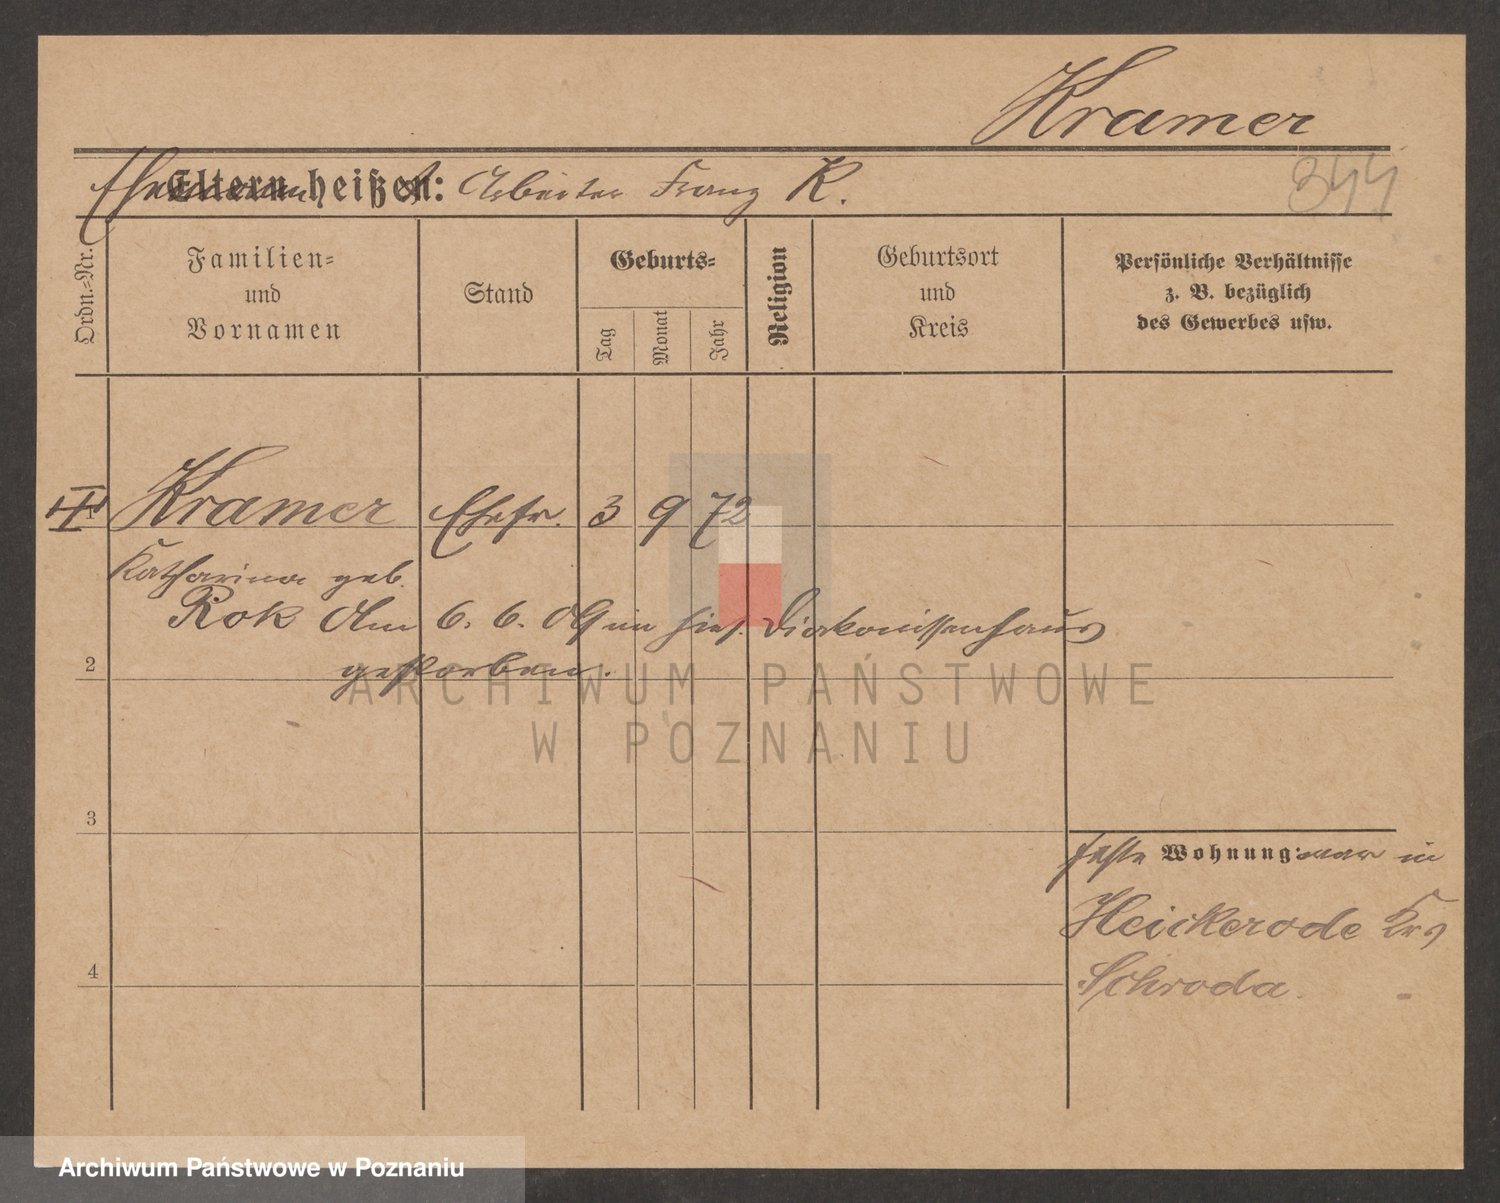 Kramer
Ehemann Eltern heißen: Arbeiter Franz K.
344
Ordn.-Nr.
Familien- und Vornamen
Stand
Geburts-
Tag
Monat
Jahr
Religion
Geburtsort und Kreis
Persönliche Verhältnisse
z. B. bezüglich
des Gewerbes usw.
1 Kramer Ehefr. 3 9 72
Katharina geb.
Rok Am 6. 6. 09 im hies. Diakonissenhaus
2 gestorben.
ARCHIWUM PAŃSTWOWE
W POZNANIU
3
feste Wohnung: war in
Heickerode Krs
4 Schroda.
Archiwum Państwowe w Poznaniu